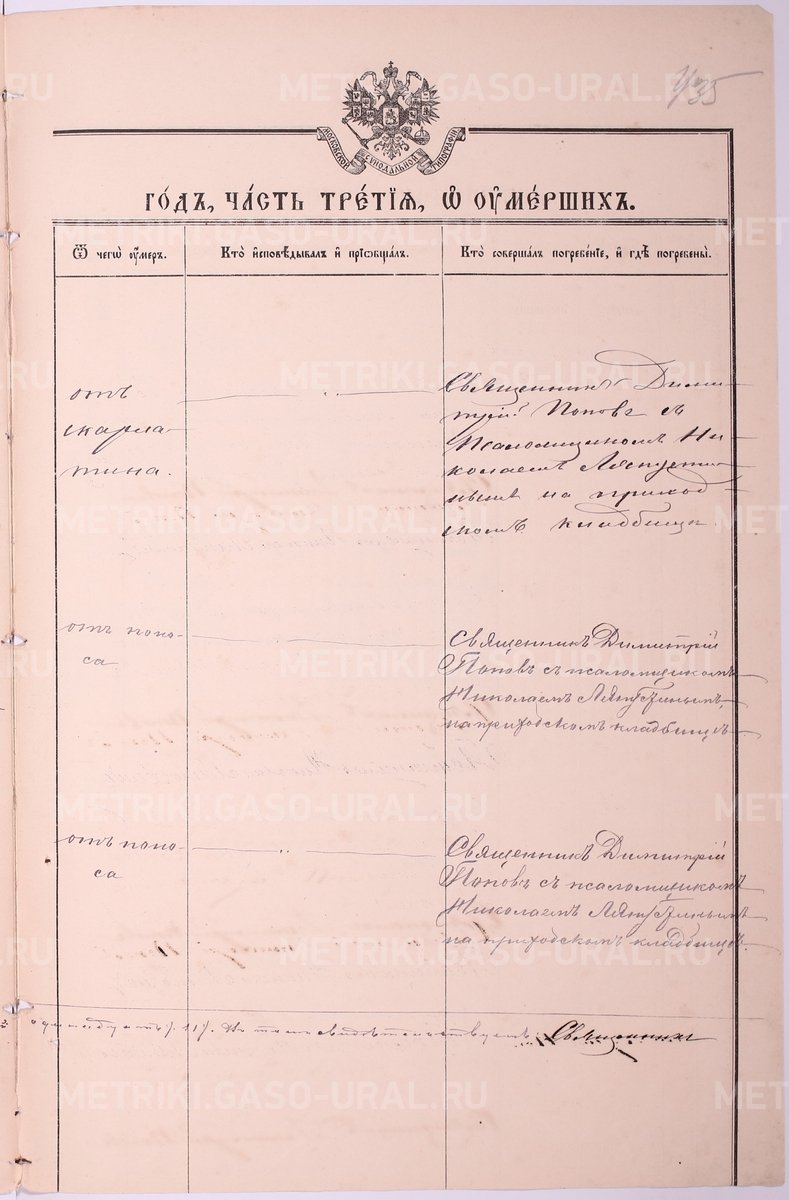 135
МОСКОВСКОЙ СѴНОДАЛЬНОЙ ТИПОГРАФІИ
ГО́ДЪ, ЧА́СТЬ ТРЕ́ТІѦ, Ѡ҆ ОУ҆МЕ́РШИХЪ.
Ѿ чегѡ̀ оу҆́меръ.
Кто̀ и҆сповѣ́дывалъ и҆ прїѡбща́лъ.
Кто̀ соверша́лъ погребе́нїе, и҆ гдѣ̀ погребены̀.
отъ
скарла-
тина.
Священникъ Дими-
трій Поповъ съ
Псаломщикомъ Ни-
колаемъ Ляпусти-
нымъ на приход-
скомъ кладбищѣ
отъ поно-
са
Священникъ Димитрій
Поповъ съ псаломщикомъ
Николаемъ Ляпустинымъ,
на приходскомъ кладбищѣ.
отъ поно-
са
Священникъ Димитрій
Поповъ съ псаломщикомъ
Николаемъ Ляпустинымъ
на приходскомъ кладбищѣ.
11). Въ томъ свидѣтельствуемъ: Священникъ
METRIKI.GASO-URAL.RU